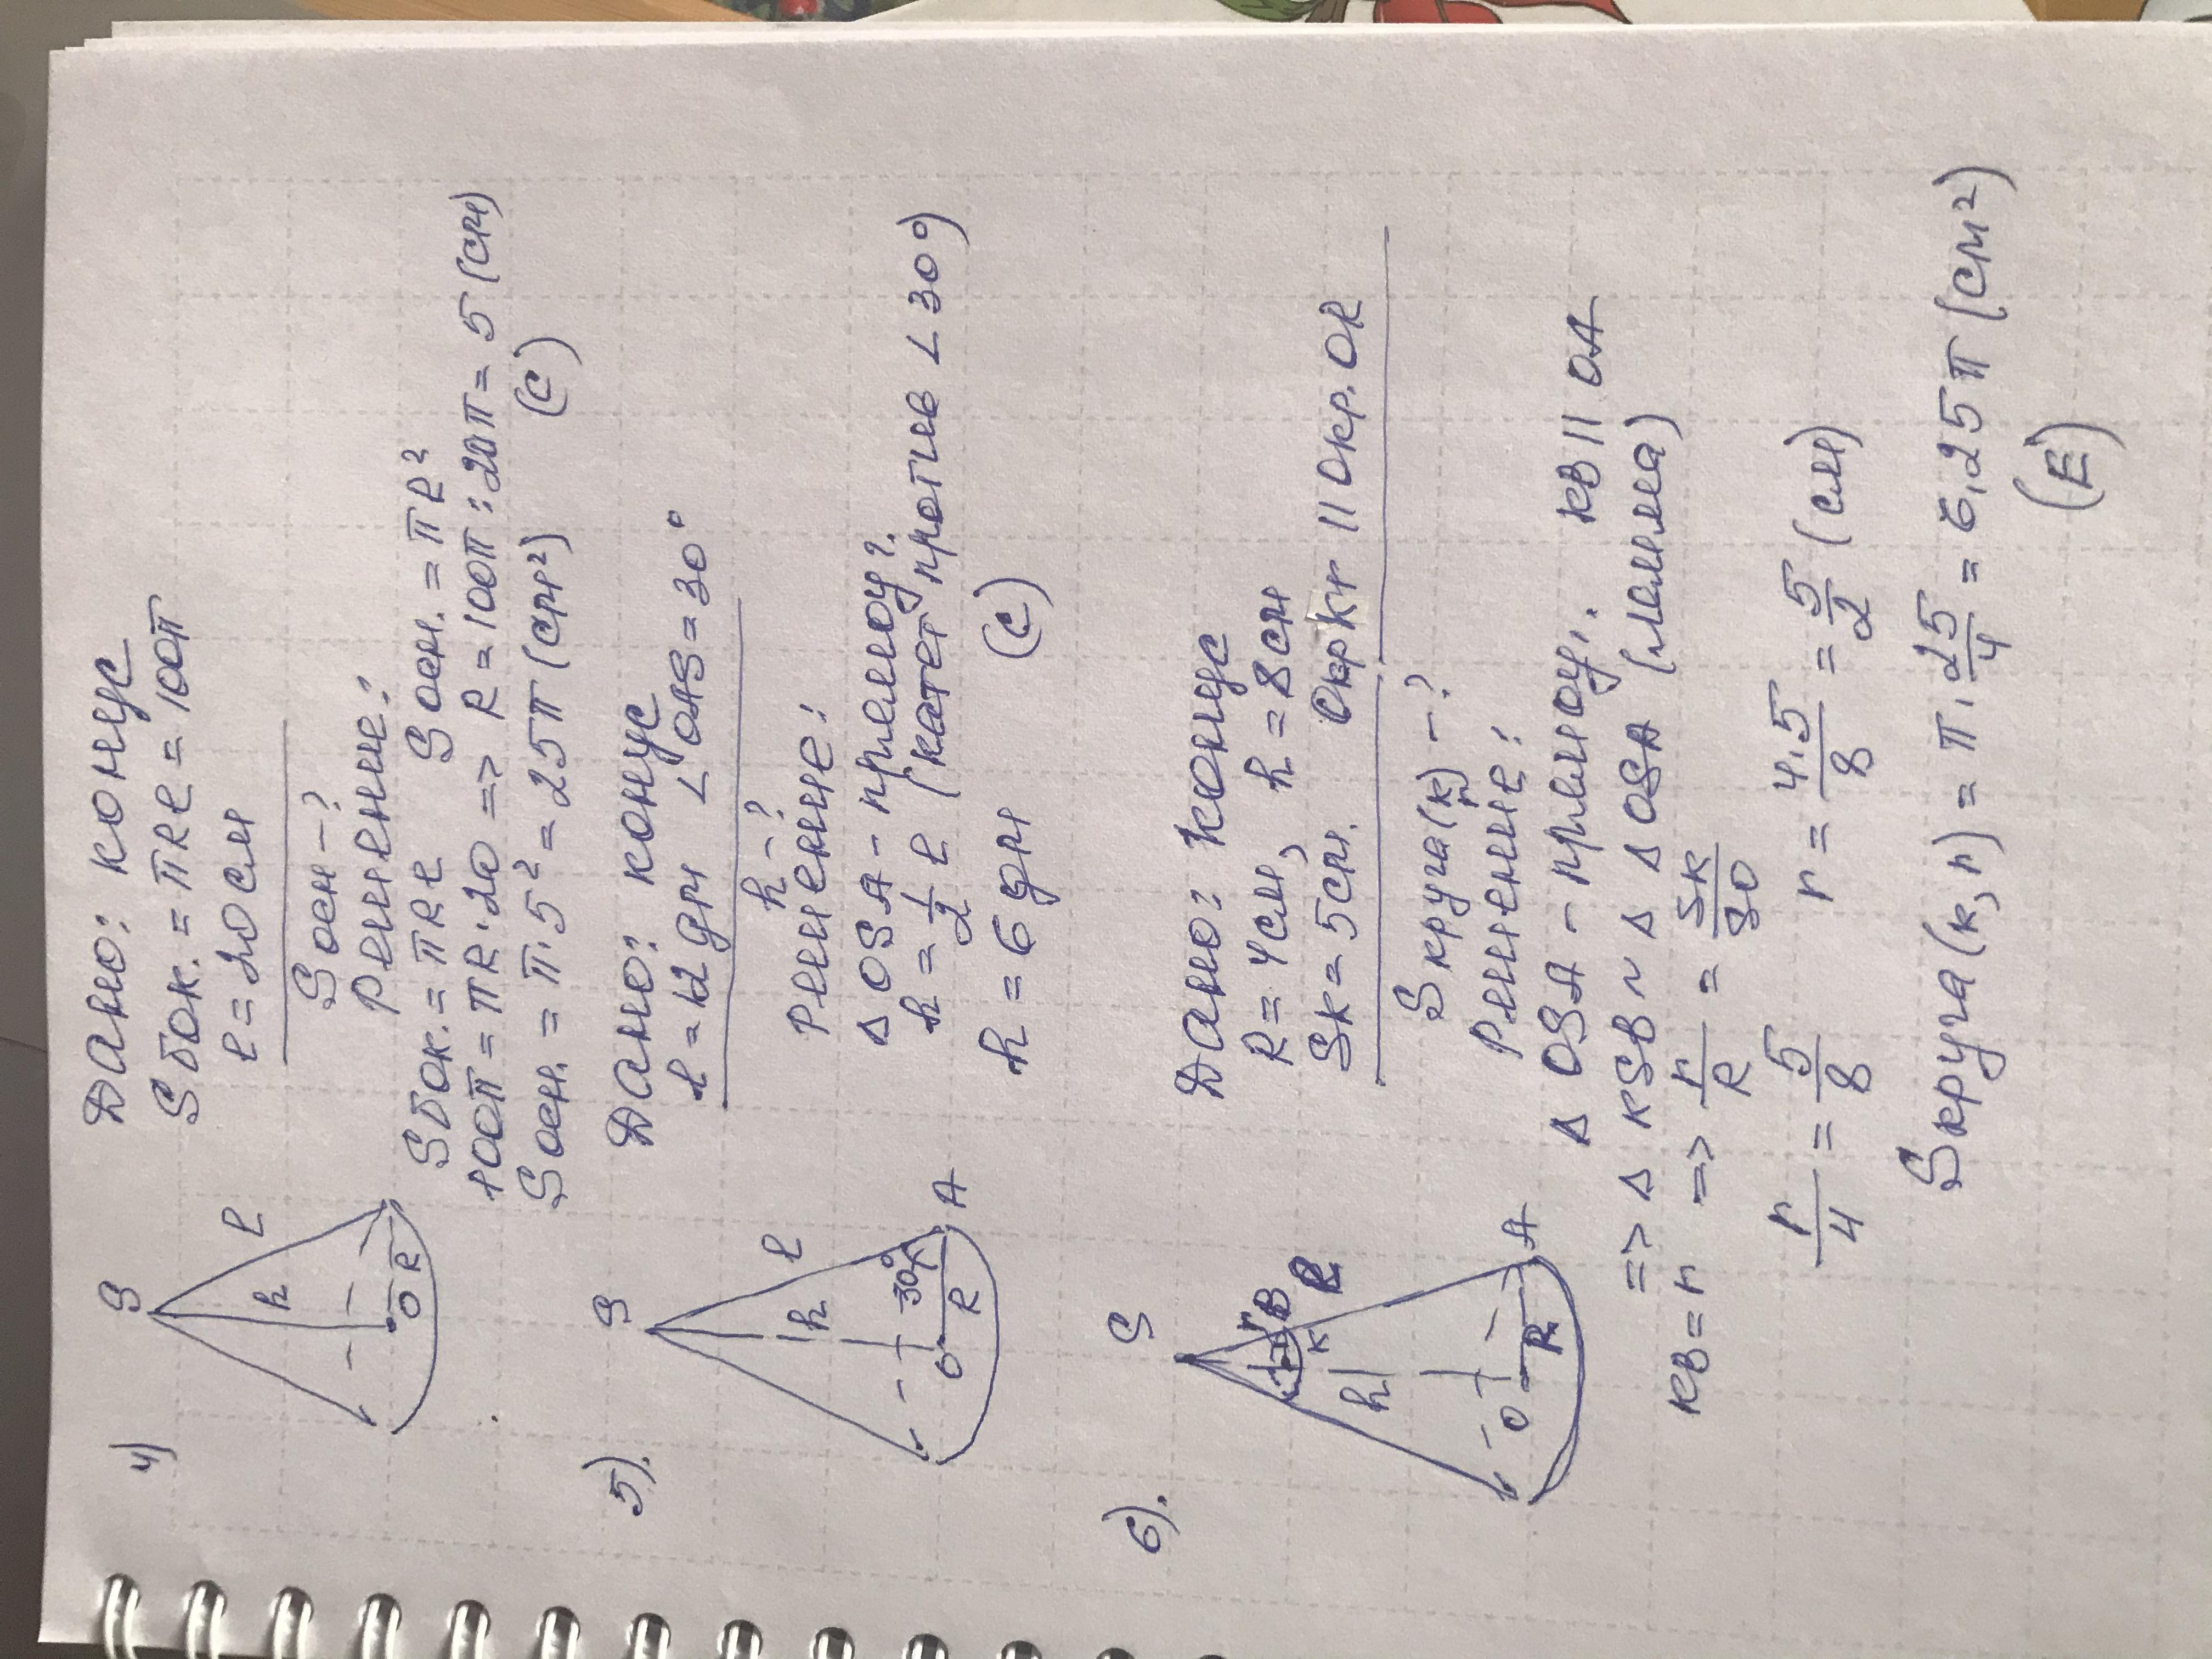 4)
S
l
h
O R
Дано: конус
Sбок. = πRl = 100π
l = 20 см
Sосн – ?
Решение:
Sбок. = πRl Sосн. = πR²
100π = πR·20 => R = 100π : 20π = 5 (см)
Sосн. = π·5² = 25π (см²) (C)
5).
S
l
h
30°
O R A
Дано: конус
l = 12 дм ∠OAS = 30°
h – ?
Решение:
Δ OSA – прямоуг.
h = 1/2 l (катет против ∠30°)
h = 6 дм (C)
6).
S
r B
к
h
O R A
Дано: конус
R = 4 см, h = 8 см
Sк = 5 см. Окр кr || Окр. OR
Sкруга(к,r) – ?
Решение:
Δ OSA – прямоуг. кB || OA
=> Δ кSB ~ Δ OSA (лемма)
кB = r => r/R = Sк/SO
r/4 = 5/8 r = 4·5/8 = 5/2 (см)
Sкруга(к,r) = π·25/4 = 6,25π (см²)
(E)